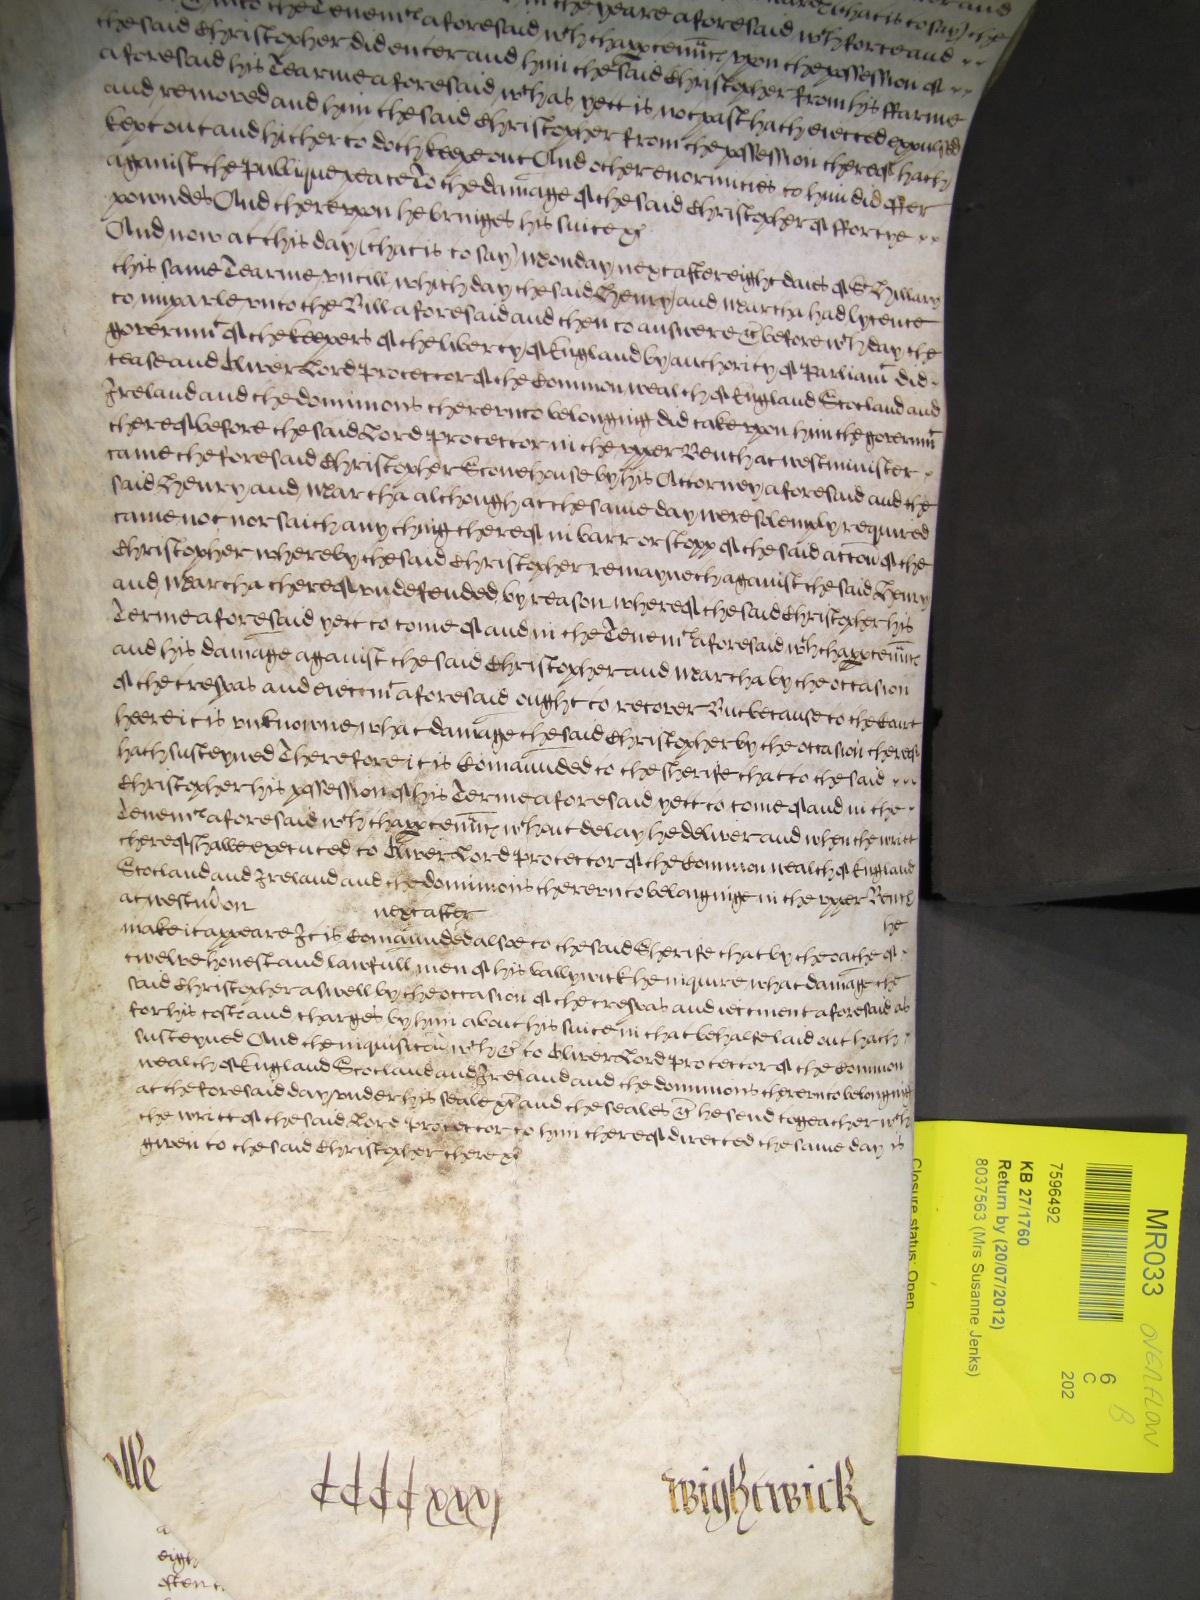 the yeare aforesaid wth force and
the said Christopher did enter and him the said Christopher from his ffarme
aforesaid his Tearme aforesaid wch as yett is not past hath eiected expulsed
and removed and him the said Christopher from the possession thereof hath
kept out and hitherto doth keepe out And other enormities to him did offer
against the publique peace To the damage of the said Christopher of ffortye
powndes And thereupon he bringes his suite
And now at this day (that is to say) Monday next after eight daies of St Hillary
this same Tearme untill which day the said Henry and Martha had lycence
to imparle unto the Bill aforesaid and then to answere before wch day the
governmt of the keepers of the liberty of England by authority of Parliamt did
cease and Oliver Lord Protector of the Common wealth of England Scotland and
Ireland and the dominions thereunto belonging did take upon him the governmt
thereof before the said Lord Protector in the upper Bench at westminster
came the foresaid Christopher Stonehouse by his Attorney aforesaid and the
said Henry and Martha although at the same day were solemply required
came not nor saith any thing thereof in barr or stopp of the said accon of the
Christopher whereby the said Christopher remayneth against the said Henry
and Martha thereof undefended by reason whereof the said Christopher his
Terme aforesaid yett to come of and in the Tenemts aforesaid wth thappten̄nces
and his damage against the said Christopher and Martha by the occasion
of the trespas and eiectmt aforesaid ought to recover But because to the Court
heere it is unknowne what damage the said Christopher by the occasion thereof
hath susteyned Therefore it is Comaunded to the Sherife that to the said
Christopher his possession of his Terme aforesaid yett to come of and in the
Tenemts aforesaid wth thappten̄nces wthout delay he deliver and when the writt
thereof shalbe executed to Oliver Lord Protector of the Common wealth of England
Scotland and Ireland and the dominions thereunto belonginge in the upper Bench
at westm̄ on next after he
make it appeare It is Comaunded alsoe to the said Sherife that by the oathe of
twelve honest and lawfull men of his ballywick he inquire what damage the
said Christopher aswell by the occasion of the trespas and iectment aforesaid as
for his costs and charges by him about his suite in that behalfe laid out hath
susteyned And the inquisicon wch to Oliver Lord Protector of the Common
wealth of England Scotland and Ireland and the dominions thereunto belonging
at the foresaid day under his seale and the seales he send togeather wth
the writt of the said Lord Protector to him thereof directed the same day is
given to the said Christopher there
ccccxxxj
wightwick
MR033
OVERFLOW
B
6
C
202
7596492
KB 27/1760
Return by (20/07/2012)
8037563 (Mrs Susanne Jenks)
Closure status: Open